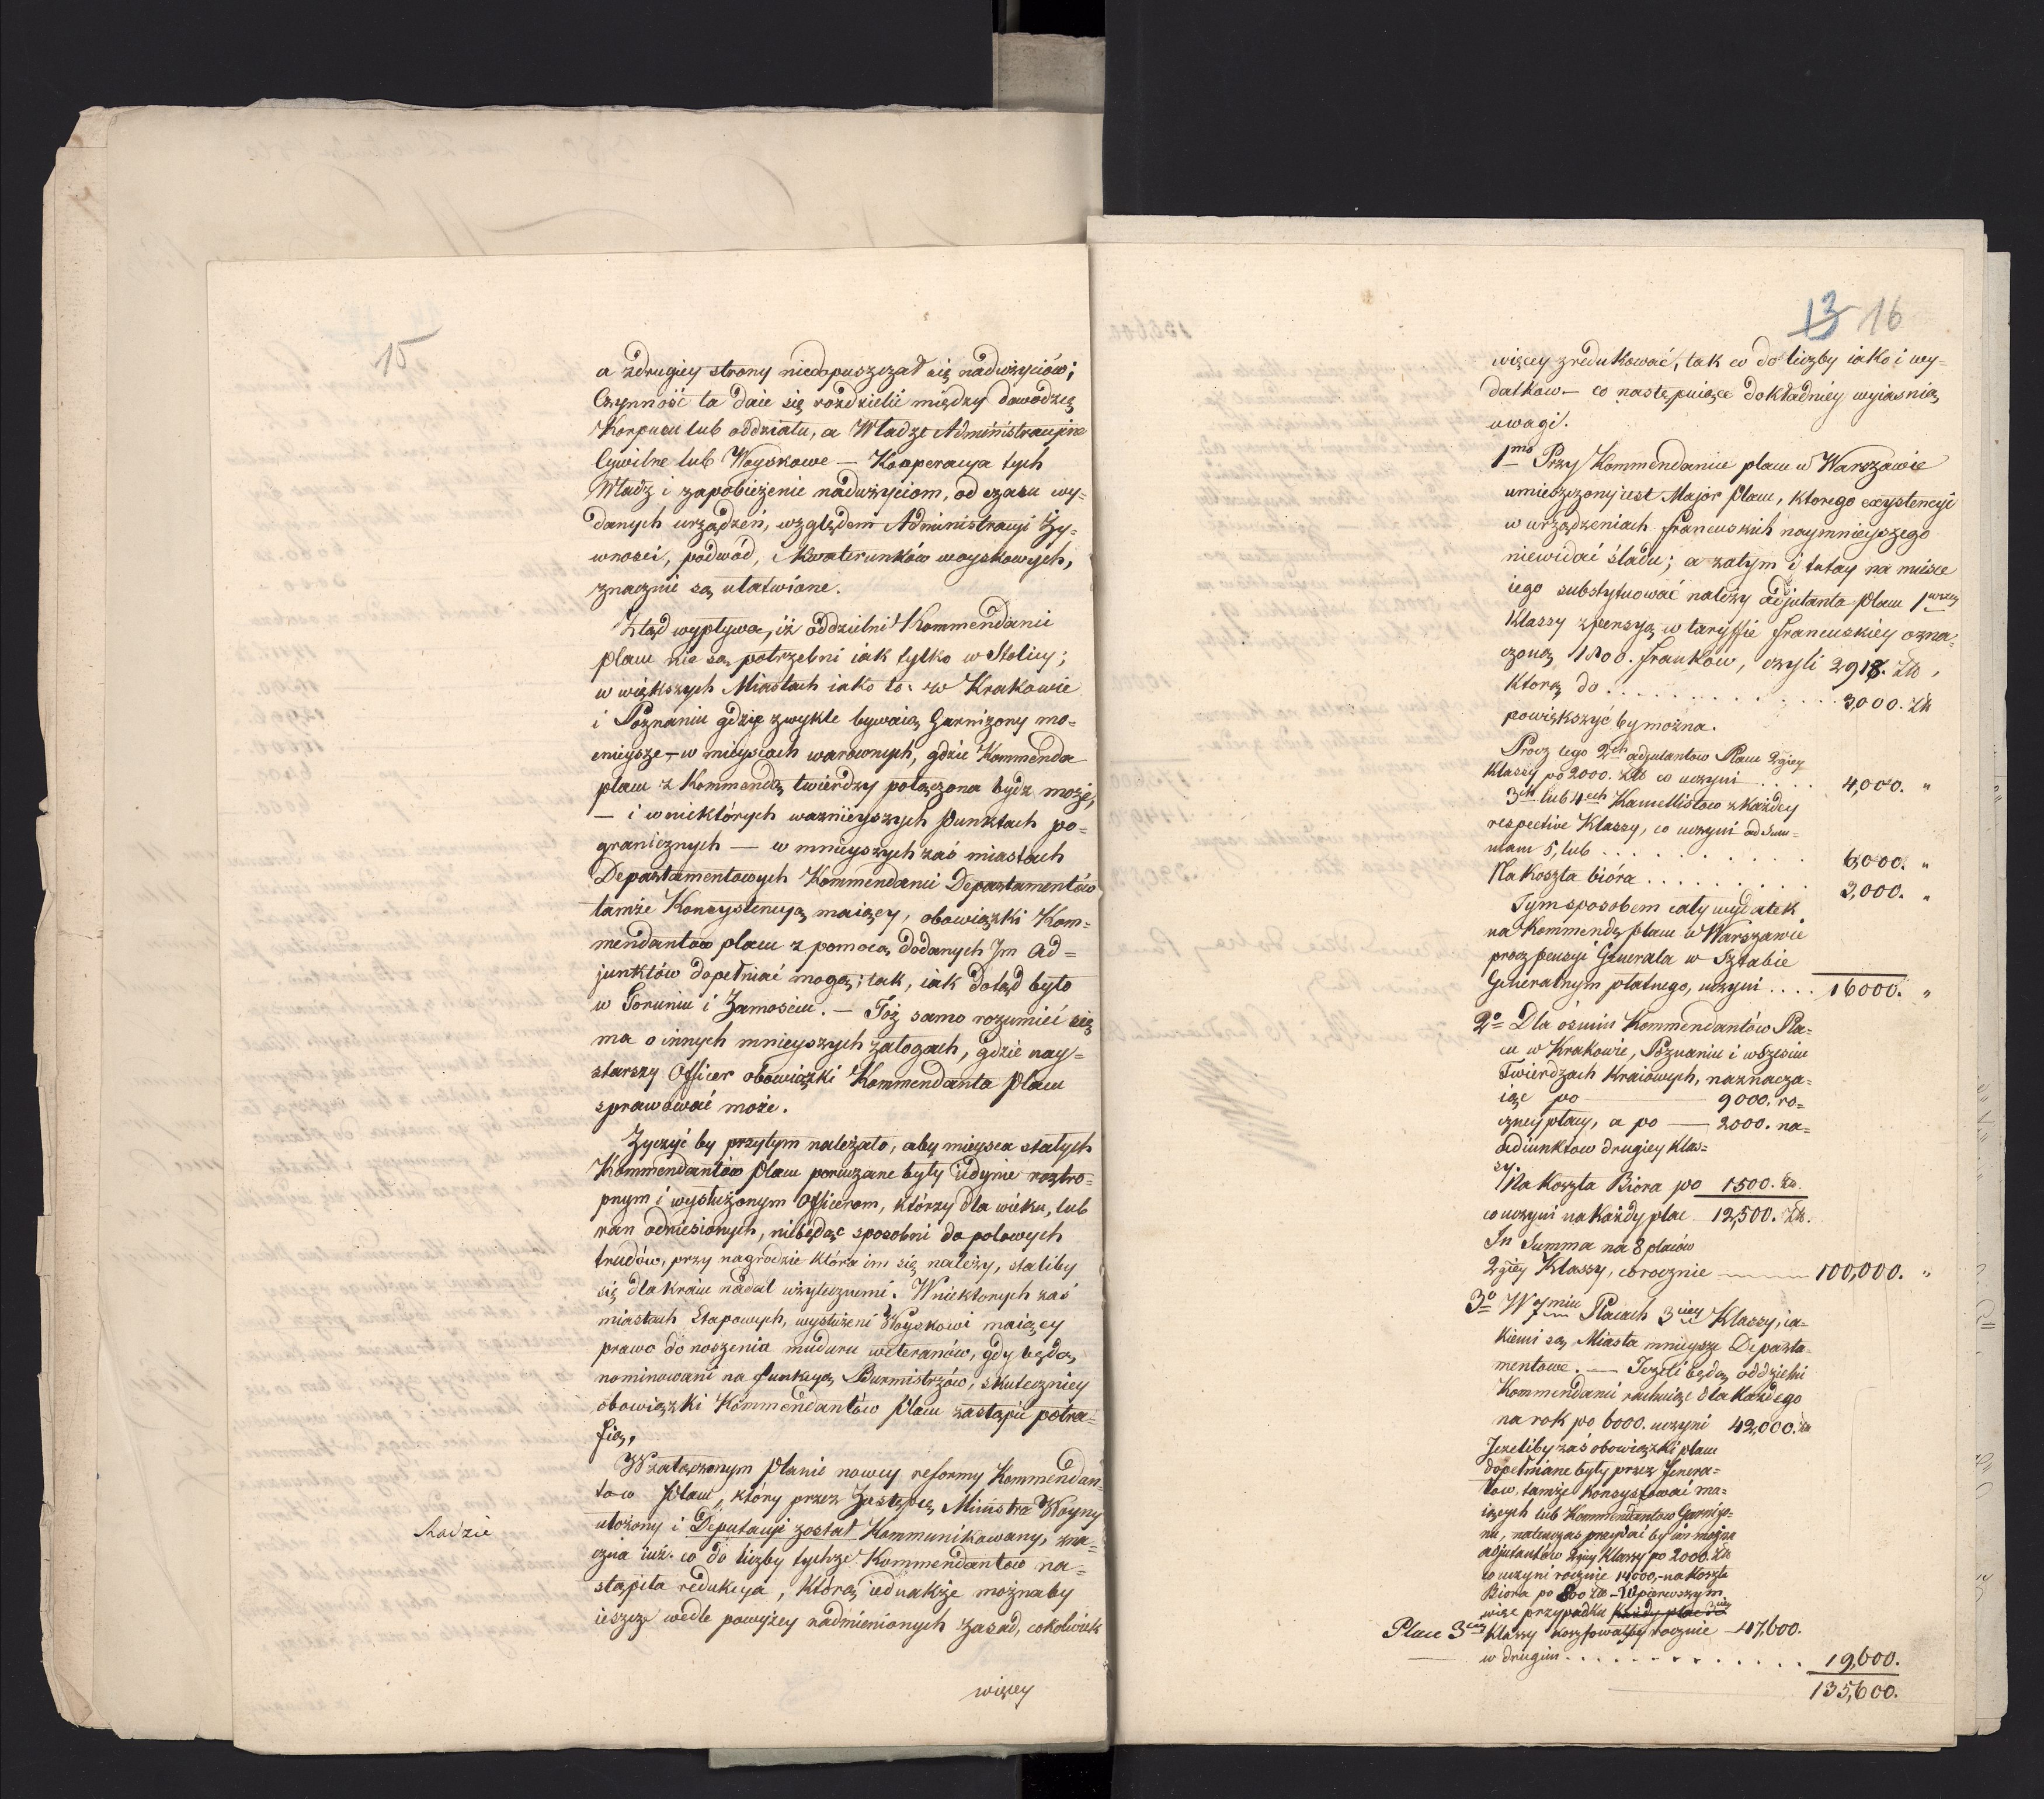 15
a zdrugiey strony niedopuszczał się nadużyciów;
Czynność ta daie się rozdzielić między dowódzcę
Korpusu lub oddziału, a Władze Administracyine
Cywilne lub Woyskowe — Kooperacya tych
Władz i zapobieżenie nadużyciom, od czasu wy=
danych urządzeń, względem Administracyi Ży=
wności, podwód, Kwaterunków woyskowych,
znacznie są ułatwione.
Ztąd wypływa, iż oddzielni Kommendanci
placu nie są potrzebni iak tylko w Stolicy;
w większych Miastach iako to: w Krakowie
i Poznaniu gdzie zwykle bywaią Garnizony mo=
cnieysze — w mieyscach warownych, gdzie Kommenda
placu z Kommendą twierdzy połączona bydz może,
— i w niektórych ważnieyszych punktach po=
granicznych — w mnieyszych zaś miastach
Departamentowych Kommendanci Departamentów
tamże Konsystencyą maiący, obowiązki Kom=
mendantów placu z pomocą dodanych Im Ad=
junktów dopełniać mogą; tak, iak dotąd było
w Toruniu i Zamościu. — Toż samo rozumieć się
ma o innych mnieyszych załogach, gdzie nay=
starszy Officer obowiązki Kommendanta Placu
sprawować może.
Zyczyć by przytym należało, aby mieysca stałych
Kommendantów Placu poruczane były iedynie roztro=
pnym i wysłużonym Officerom, którzy dla wieku, lub
ran odniesionych, niebędąc sposobni do polowych
trudów, przy nagrodzie która im się należy, staliby
się dla kraiu nadal użytecznemi. W niektorych zaś
miastach Etapowych, wysłużeni Woyskowi maiący
prawo do noszenia munduru weteranów, gdy będą
nominowani na funkcyą Burmistrzów, skuteczniey
obowiązki Kommendantów Placu zastąpić potra=
fią.
W załączonym Planie nowey reformy Kommendan
tów Placu, który przez Zastępcę Ministra Woyny
ułożony i Deputacyi został Kommunikowany, zna=
Radzie
cznie iuż co do liczby tychże Kommendantów na=
stąpiła redukcya, którą iednakże możnaby
ieszcze wedle powyżey nadmienionych zasad, cokolwiek
więcey
13 16
więcey zredukować, tak co do liczby iako i wy=
datkow — co następuiące dokładniey wyiasnią
uwagi.
1mo Przy Kommendancie placu w Warszawie
umieszczony iest Major Placu, ktorego exystencyi
w urządzeniach francuskich naymnieyszego
niewidać śladu; a zatym i tutay na mieysce
iego substytuować należy adjutanta Placu 1wszey
Klassy z pensyą w taryffie francuskiey ozna=
czoną 1800. franków, czyli 2918. Zł.,
ktorą do . . . . . . . . 3,000. Zł
powiększyć by można.
Procz tego 2ch adjutantow Placu 2giey
Klassy po 2000. Zł co uczyni . . . . 4,000. "
3ch lub 4ech Kancellistow z każdey
respective Klassy, co uczyni ad Sum=
mam 5, lub . . . . . . . . 6,000. "
Na koszta biora . . . . . . . 3,000. "
Tym sposobem cały wydatek
na Kommendę placu w Warszawie
procz pensyi Generała w Sztabie
Generalnym płatnego, uczyni . . . . 16000. "
2o Dla ośmiu Kommendantów Pla=
cu w Krakowie, Poznaniu i w Sześciu
Twierdzach Kraiowych, naznacza=
iąc po — 9000. ro=
czney płacy, a po — 2000. na=
adiunktow drugiey Klas=
sy.
Na koszta Biora po 1500. Zł.
co uczyni na każdy plac 12,500. Zł.
In Summa na 8 placów
2giey Klassy, corocznie — 100,000. "
3o W 7miu Placach 3ciey Klassy, ia=
kiemi są Miasta mnieysze Departa=
mentowe. — Jeżeli będą oddzielni
Kommendanci rachuiąc dla każdego
na rok po 6000. uczyni 42,000. Zł
Jeżeliby zaś obowiązki placu
dopełniane były przez Jenera=
łow, tamże Konsystować ma=
iących lub Kommendantow Garnizo=
nu, natenczas przydać by im można
adjutantów 2giey Klassy po 2000. Zł
co uczyni rocznie 14000, na Koszta
Biora po 800 Zł — W pierwszym
więc przypadku każdy plac 3ciey
Place 3ciey Klassy kosztowałyby rocznie — 47,600.
w drugim . . . . . . . . . . . 19,600.
135,600.